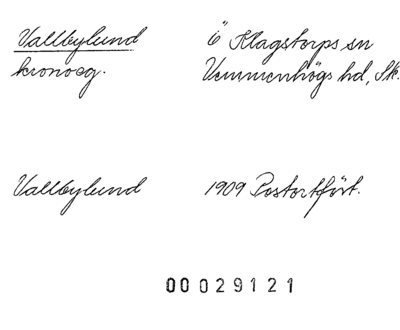 Vallbylund i Klagstorps sn
kronoeg. Vemmenhögs hd, Sk.
Vallbylund 1909 Postortfört.
00029121